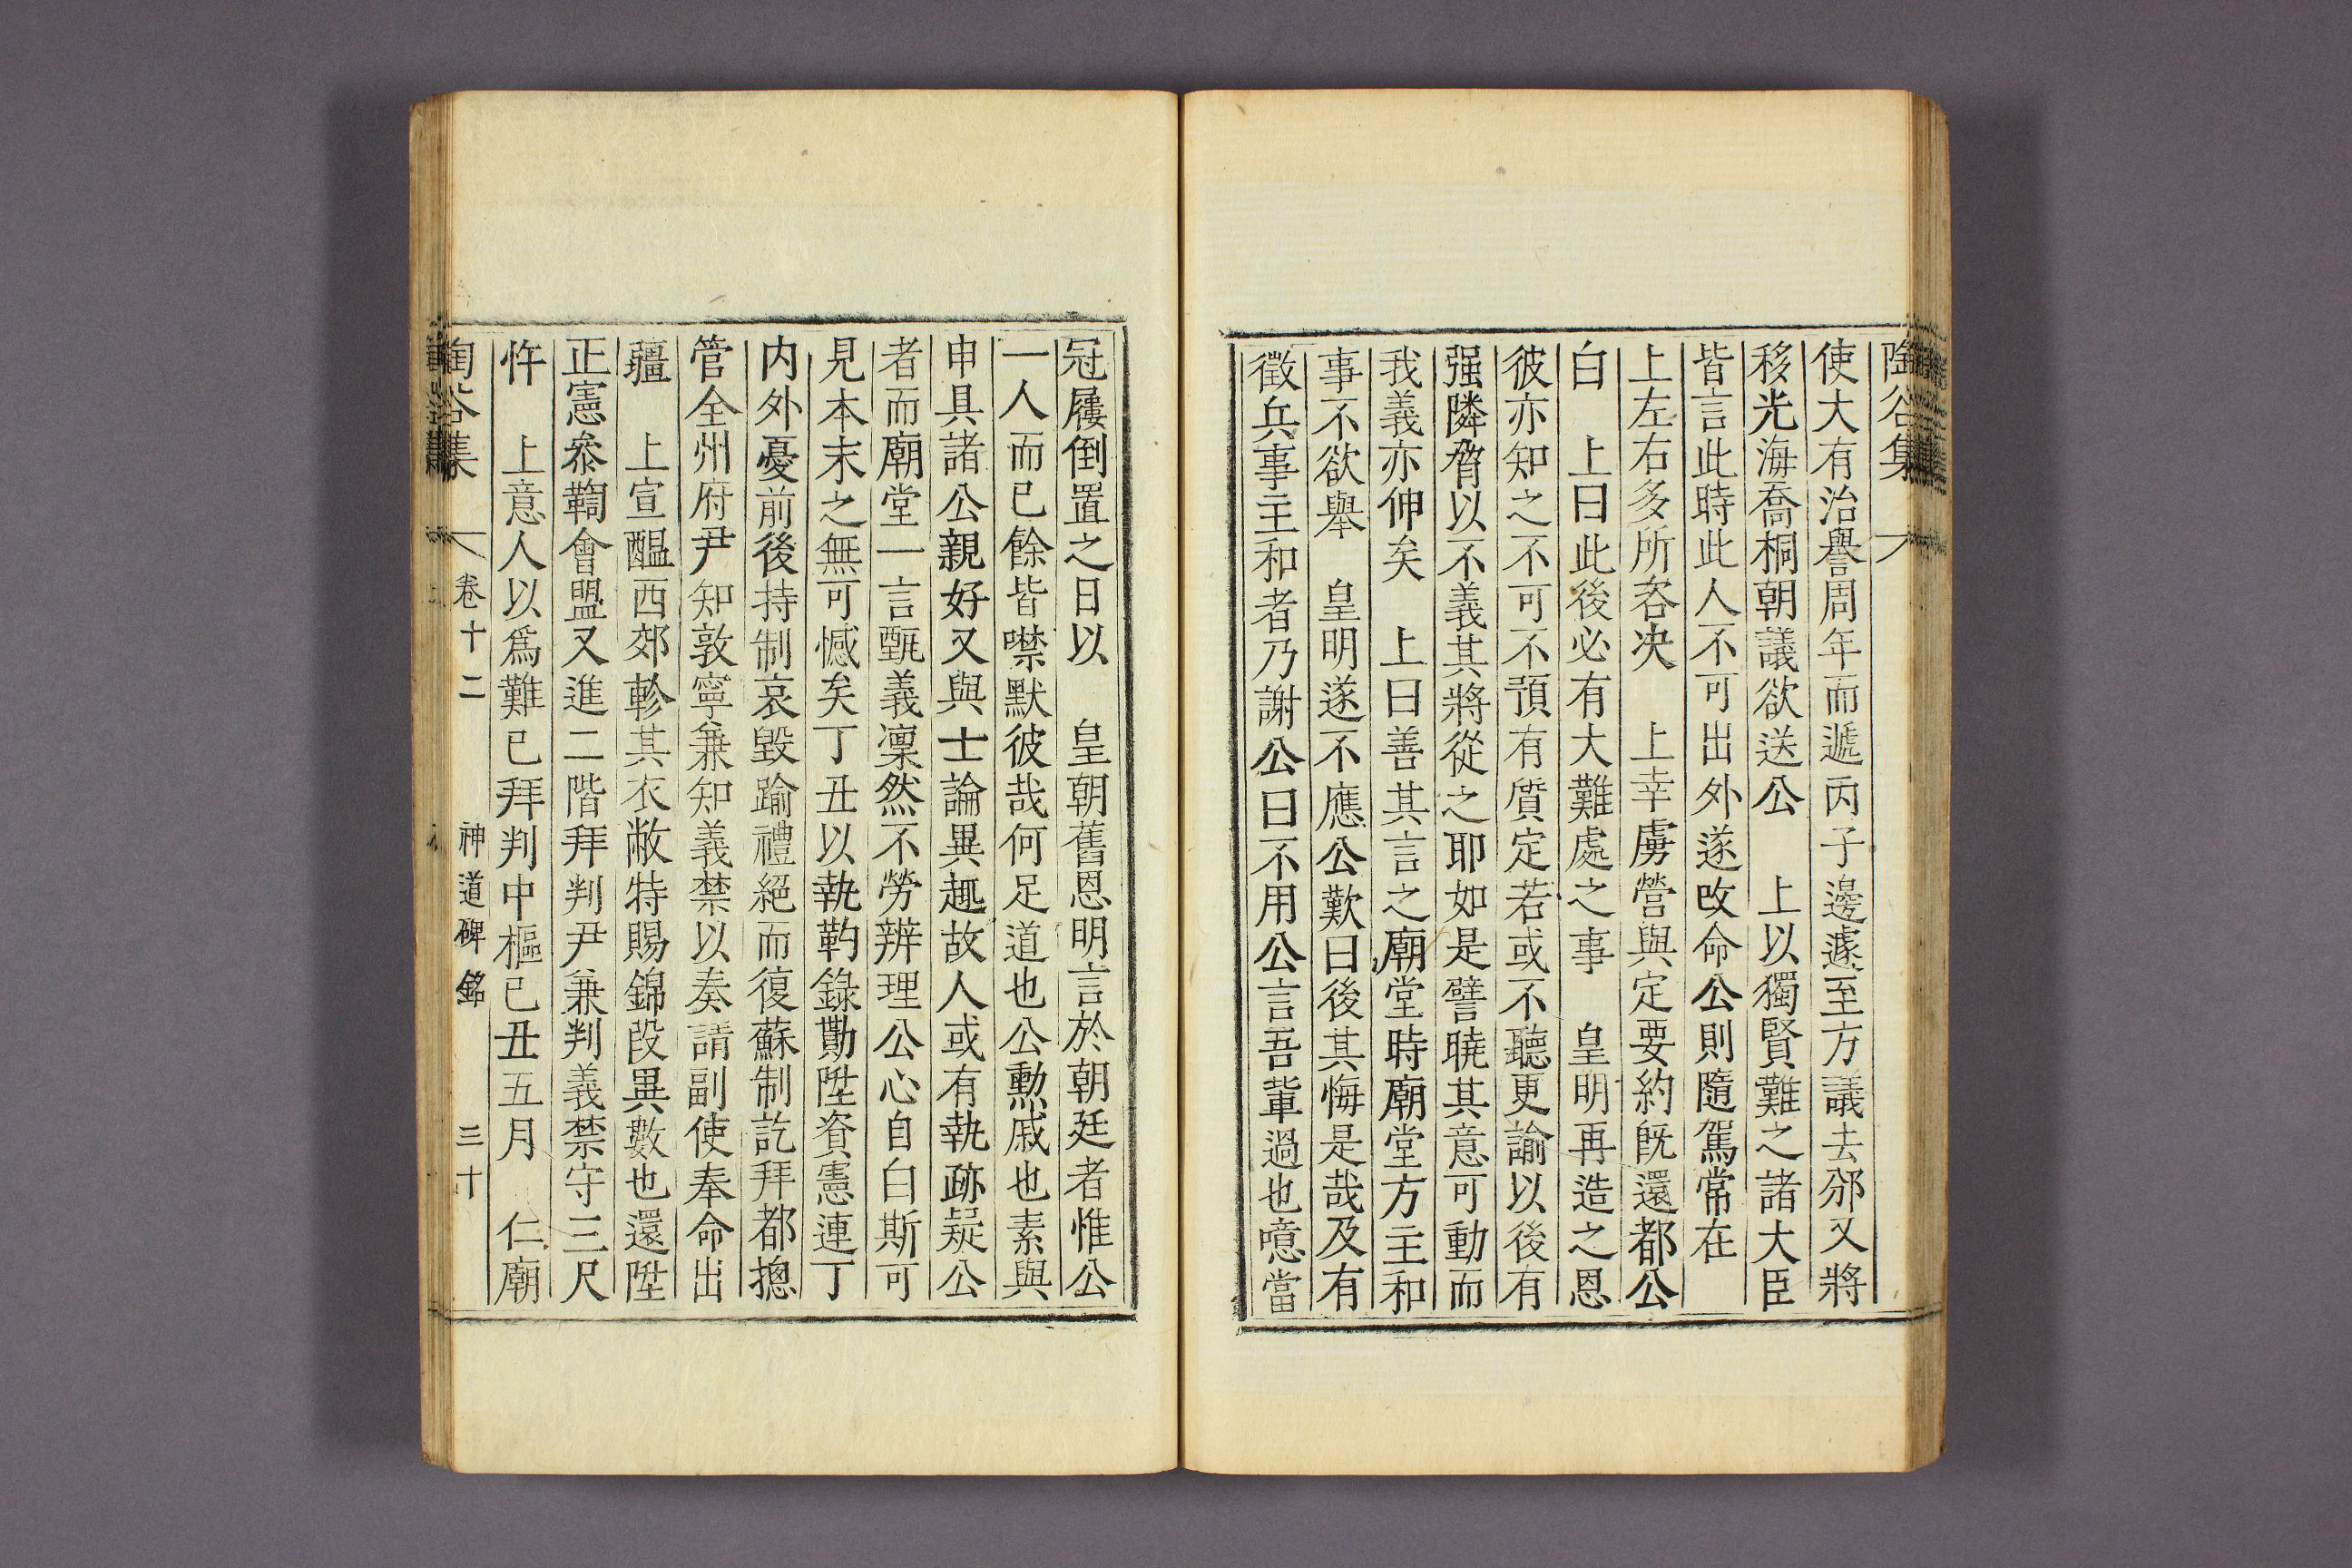 陶谷集
使大有治譽周年而遞丙子邊遽至方議去邠又將
移光海喬桐朝議欲送公　上以獨賢難之諸大臣
皆言此時此人不可出外遂改命公則隨駕常在
上左右多所咨决　上幸虜營與定要約旣還都公
白　上曰此後必有大難處之事　皇明再造之恩
彼亦知之不可不預有質定若或不聽更諭以後有
强隣脅以不義其將從之耶如是譬曉其意可動而
我義亦伸矣　上曰善其言之廟堂時廟堂方主和
事不欲擧　皇明遂不應公歎曰後其悔是哉及有
徵兵事主和者乃謝公曰不用公言吾輩過也噫當
冠屨倒置之日以　皇朝舊恩明言於朝廷者惟公
一人而已餘皆噤默彼哉何足道也公勳戚也素與
申具諸公親好又與士論異趣故人或有執跡疑公
者而廟堂一言甄義凜然不勞辨理公心自白斯可
見本末之無可憾矣丁丑以執靮錄勩陞資憲連丁
内外憂前後持制哀毁踰禮絕而復蘇制訖拜都摠
管全州府尹知敦寧兼知義禁以奏請副使奉命出
疆　上宣醞西郊軫其衣敝特賜錦段異數也還陞
正憲叅鞫會盟又進二階拜判尹兼判義禁守三尺
忤　上意人以爲難已拜判中樞己丑五月　仁廟
陶谷集　卷十二　神道碑銘　三十